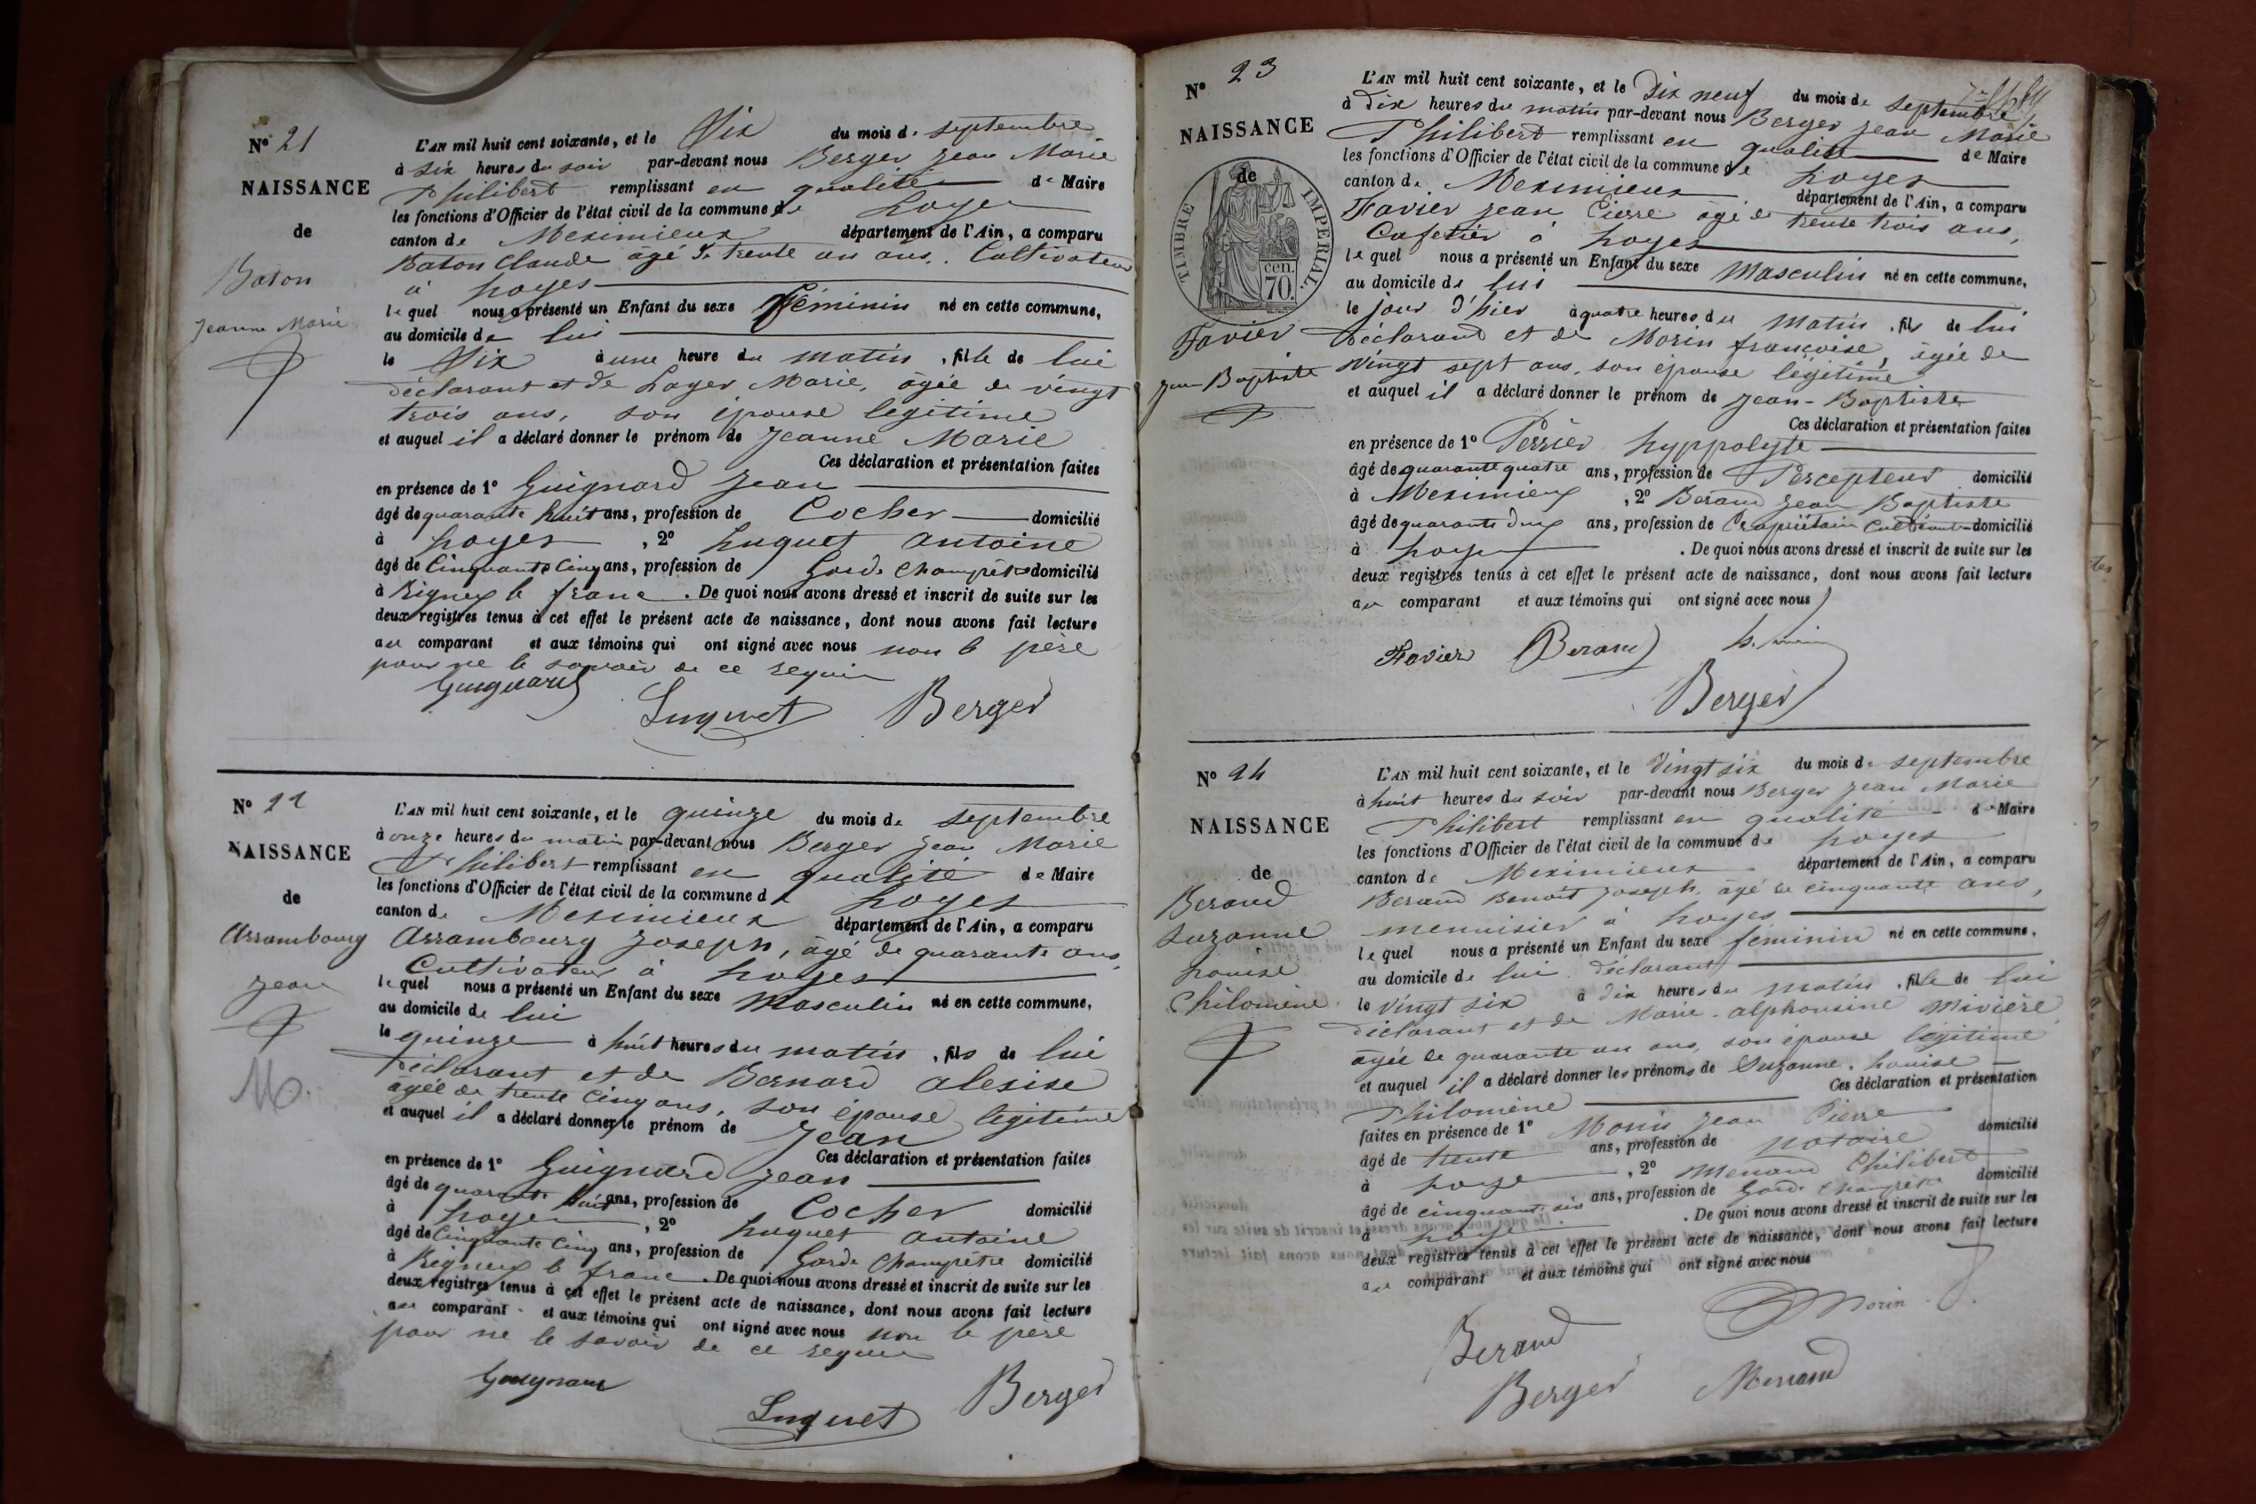 N° 21
NAISSANCE
de
Baton
Jeanne Marie
L'AN mil huit cent soixante, et le Dix du mois de septembre
à six heures du soir par-devant nous Berger Jean Marie
Philibert remplissant en qualité de Maire
les fonctions d'Officier de l'état civil de la commune de Loyes
canton de Meximieux département de l'Ain, a comparu
Baton Claude âgé de trente un ans, Cultivateur
à Loyes
lequel nous a présenté un Enfant du sexe féminin né en cette commune,
au domicile de lui
le Dix à une heure du matin, fille de lui
déclarant et de Layer Marie, âgée de vingt
trois ans, son épouse legitime
et auquel il a déclaré donner le prénom de Jeanne Marie
Ces déclaration et présentation faites
en présence de 1° Guignard Jean
âgé de quarante huit ans, profession de Cocher domicilié
à Loyes, 2° Luquet Antoine
âgé de Cinquante Cinq ans, profession de Garde Champêtre domicilié
à Rignieux le franc. De quoi nous avons dressé et inscrit de suite sur les
deux registres tenus à cet effet le présent acte de naissance, dont nous avons fait lecture
au comparant et aux témoins qui ont signé avec nous non le père
pour ne le savoir de ce requis
Guignard
Luquet Berger
N° 22
NAISSANCE
de
Arrambourg
Jean
L'AN mil huit cent soixante, et le quinze du mois de septembre
à onze heures du matin par-devant nous Berger Jean Marie
Philibert remplissant en qualité de Maire
les fonctions d'Officier de l'état civil de la commune de Loyes
canton de Meximieux département de l'Ain, a comparu
Arrambourg Joseph, âgé de quarante ans,
Cultivateur à Loyes
lequel nous a présenté un Enfant du sexe Masculin né en cette commune,
au domicile de lui
le quinze à huit heures du matin, fils de lui
déclarant et de Bernard alexise
âgée de trente Cinq ans, son épouse legitime
et auquel il a déclaré donner le prénom de Jean
Ces déclaration et présentation faites
en présence de 1° Guignard Jean
âgé de quarante huit ans, profession de Cocher domicilié
à Loyes, 2° Luquet Antoine
âgé de Cinquante Cinq ans, profession de Garde Champêtre domicilié
à Rignieux le franc. De quoi nous avons dressé et inscrit de suite sur les
deux registres tenus à cet effet le présent acte de naissance, dont nous avons fait lecture
au comparant et aux témoins qui ont signé avec nous non le père
pour ne le savoir de ce requis
Guignard
Luquet Berger
N° 23
NAISSANCE
de
TIMBRE IMPERIAL.
70 cen.
Favier
Jean Baptiste
L'AN mil huit cent soixante, et le Dix neuf du mois de septembre
à dix heures du matin par-devant nous Berger Jean Marie
Philibert remplissant en qualité de Maire
les fonctions d'Officier de l'état civil de la commune de Loyes
canton de Meximieux département de l'Ain, a comparu
Favier Jean Pierre âgé de trente trois ans,
Cafetier à Loyes
lequel nous a présenté un Enfant du sexe Masculin né en cette commune,
au domicile de lui
le jour d'hier à quatre heures du matin, fils de lui
déclarant et de Morin françoise, âgée de
vingt sept ans, son épouse légitime
et auquel il a déclaré donner le prénom de Jean-Baptiste
Ces déclaration et présentation faites
en présence de 1° Perrier hyppolyte
âgé de quarante quatre ans, profession de Percepteur domicilié
à Meximieux, 2° Beraud Jean Baptiste
âgé de quarante deux ans, profession de Propriétaire Cultivateur domicilié
à Loyes. De quoi nous avons dressé et inscrit de suite sur les
deux registres tenus à cet effet le présent acte de naissance, dont nous avons fait lecture
au comparant et aux témoins qui ont signé avec nous
Favier Beraud
Berger
N° 24
NAISSANCE
de
Beraud
Suzanne
Louise
Philomène
L'AN mil huit cent soixante, et le vingt six du mois de septembre
à huit heures du soir par-devant nous Berger Jean Marie
Philibert remplissant en qualité de Maire
les fonctions d'Officier de l'état civil de la commune de Loyes
canton de Meximieux département de l'Ain, a comparu
Beraud Benoît Joseph, âgé de cinquante ans,
menuisier à Loyes
lequel nous a présenté un Enfant du sexe féminin né en cette commune,
au domicile de lui déclarant
le vingt six à dix heures du matin, fille de lui
déclarant et de Marie-alphonsine Mivière
âgée de quarante un ans, son épouse legitime
et auquel il a déclaré donner les prénoms de Suzanne, Louise
Ces déclaration et présentation
Philomène
faites en présence de 1° Morin Jean Pierre
âgé de trente ans, profession de notaire domicilié
à Loyes, 2° Menand Philibert
âgé de cinquante six ans, profession de Garde Champêtre domicilié
à Loyes. De quoi nous avons dressé et inscrit de suite sur les
deux registres tenus à cet effet le présent acte de naissance, dont nous avons fait lecture
au comparant et aux témoins qui ont signé avec nous
Beraud Morin
Berger Menand